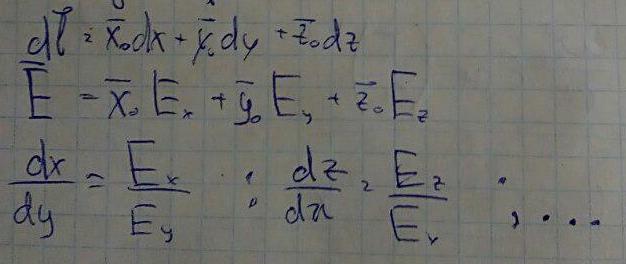 dl̅ = x̅₀dx + y̅₀dy + z̅₀dz
E̅ = x̅₀Eₓ + y̅₀E_y + z̅₀E_z
dx/dy = Eₓ/E_y ; dz/dx = E_z/Eₓ ; ....